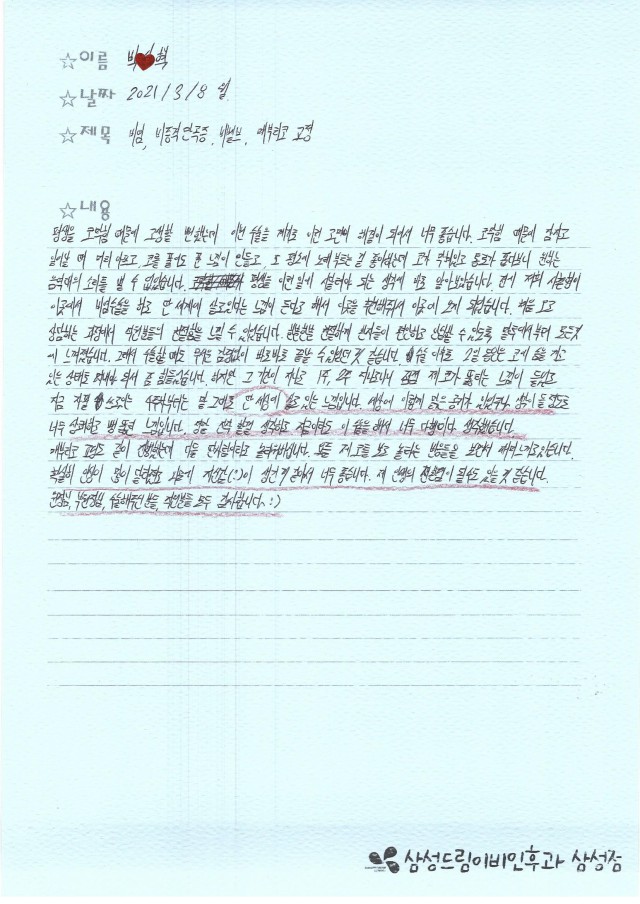 ☆이름 박 혁
☆날짜 2021/3/8 월
☆제목 비염, 비중격만곡증, 비밸브, 매부리코 교정
☆내용
평생을 코막힘 때문에 고생할 뻔 했는데 이번 수술을 계기로 이런 고민이 해결이 되어서 너무 좋습니다. 코막힘 때문에 잠자고
일어날 때 머리 아프고 코를 풀어도 푼 느낌이 안들고 또 평소에 노래 부르는 걸 좋아하는데 코가 막혀있고 통로가 좁다보니 원하는
음역대의 소리를 낼 수 없었습니다. 평생을 이런 일에 시달려야 되는 생각에 바로 알아보았습니다. 전에 저희 사촌형이
이곳에서 비염수술을 하고 딴 세계에 살고있다는 느낌이 든다고 해서 이곳을 추천해줘서 이곳에 오게 되었습니다. 여길 오고
상담하는 과정에서 직원분들의 친절함을 느낄 수 있었습니다. 한분한분 친절하게 환자들이 편안하고 안심할 수 있도록 말투에서부터 모든것
이 느껴졌습니다. 그래서 수술할 때도 무서운 감정없이 바로바로 할 수 있었던 것 같습니다. 수술 이후로 2일 동안은 코에 솜을 끼고
있는 상태로 지내야 되서 좀 힘들었습니다. 하지만 그 기간이 지나고 1주, 2주 지나고나니 점점 제 코가 뚫리는 느낌이 들었고
지금 자필 쓰고있는 4주차부터는 말 그대로 딴 세상에 살고 있는 느낌입니다. 세상에 이렇게 맑은 공기가 있었구나 생각이 들 정도로
너무 상쾌하고 뻥 뚫린 느낌입니다. 정말 선택 잘했 생각하고 지금이라도 이 수술 해서 너무 다행이다 생각했습니다.
매부리코 교정도 같이 진행했는데 다들 인위적이라고 놀려하십니다. 모두 제 코를 보고 놀라는 반응들을 보면서 재미느끼고있습니다.
확실히 인상이 많이 달라졌고 그 덕에 자신감(:)이 생긴 것 같아서 너무 좋습니다. 제 인생의 전환점이 될 수도 있을 것 같습니다.
원장님, 부원장님, 수술해주신 분들, 직원분들 모두 감사합니다~ :)
삼성드림이비인후과 삼성점